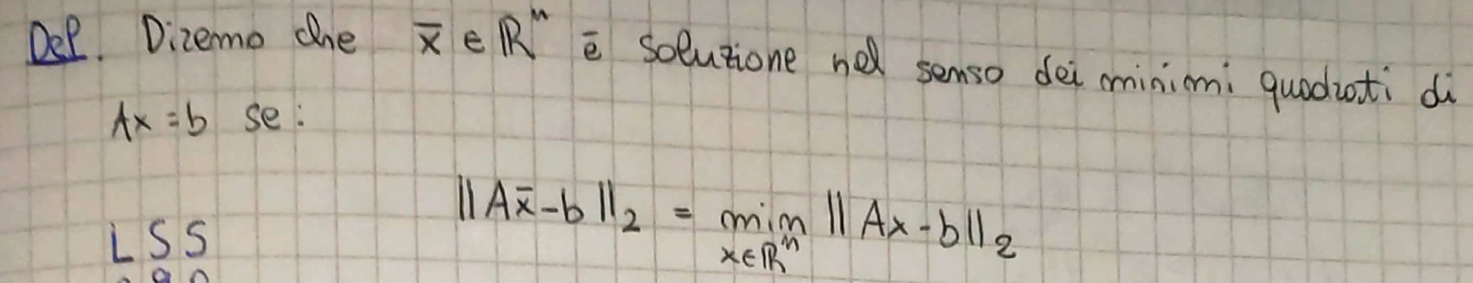 Def. Diremo che x̄ ∈ ℝⁿ è soluzione nel senso dei minimi quadrati di
Ax = b se:
||Ax̄ - b||₂ = min ||Ax - b||₂
x∈ℝⁿ
LSS